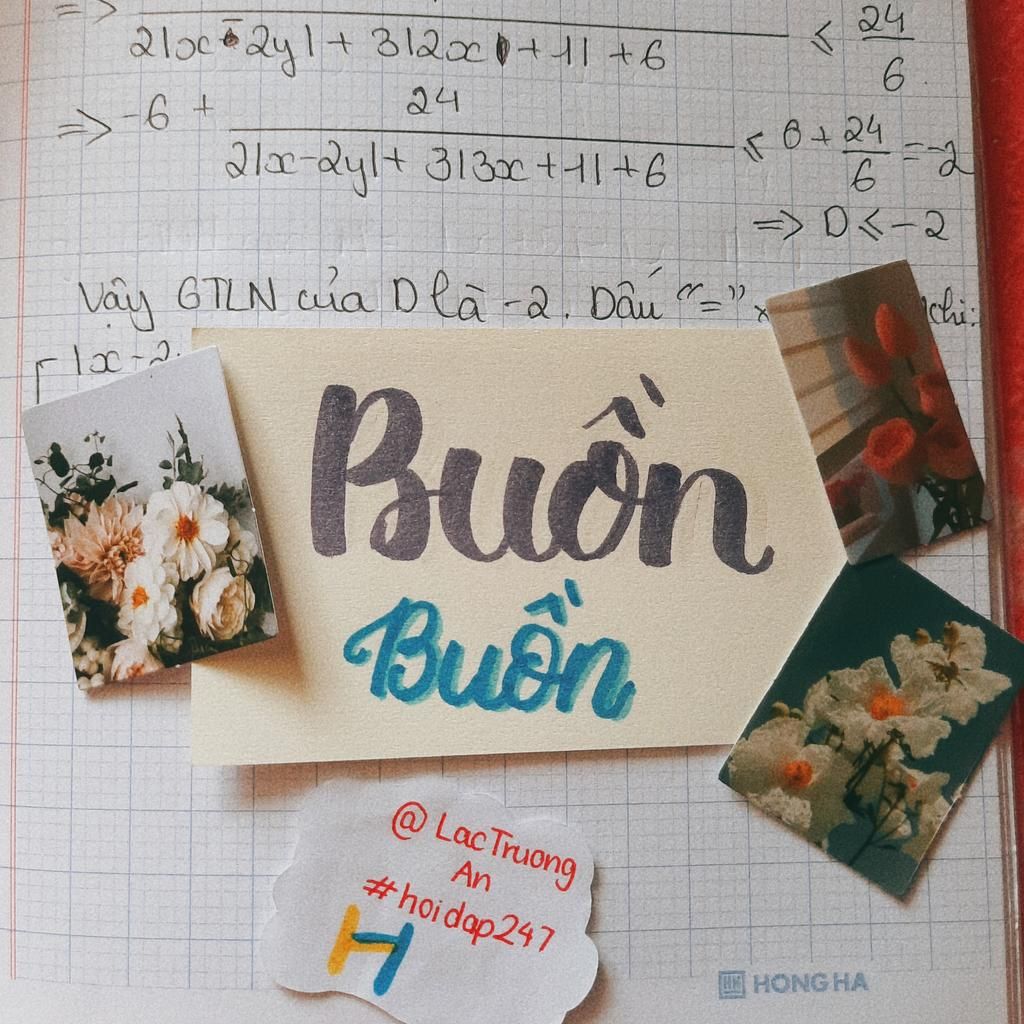 => 2|x - 2y| + 3|2x + 1| + 6 ≤ 24/6
=> -6 + 24/(2|x-2y| + 3|3x + 1| + 6) ≤ 6 + 24/6 = -2
=> D ≤ -2
Vậy GTLN của D là -2. Dấu "=" x chi:
|x - 2
Buồn
Buồn
@ LacTruong
An
#hoidap247
H
HONG HA